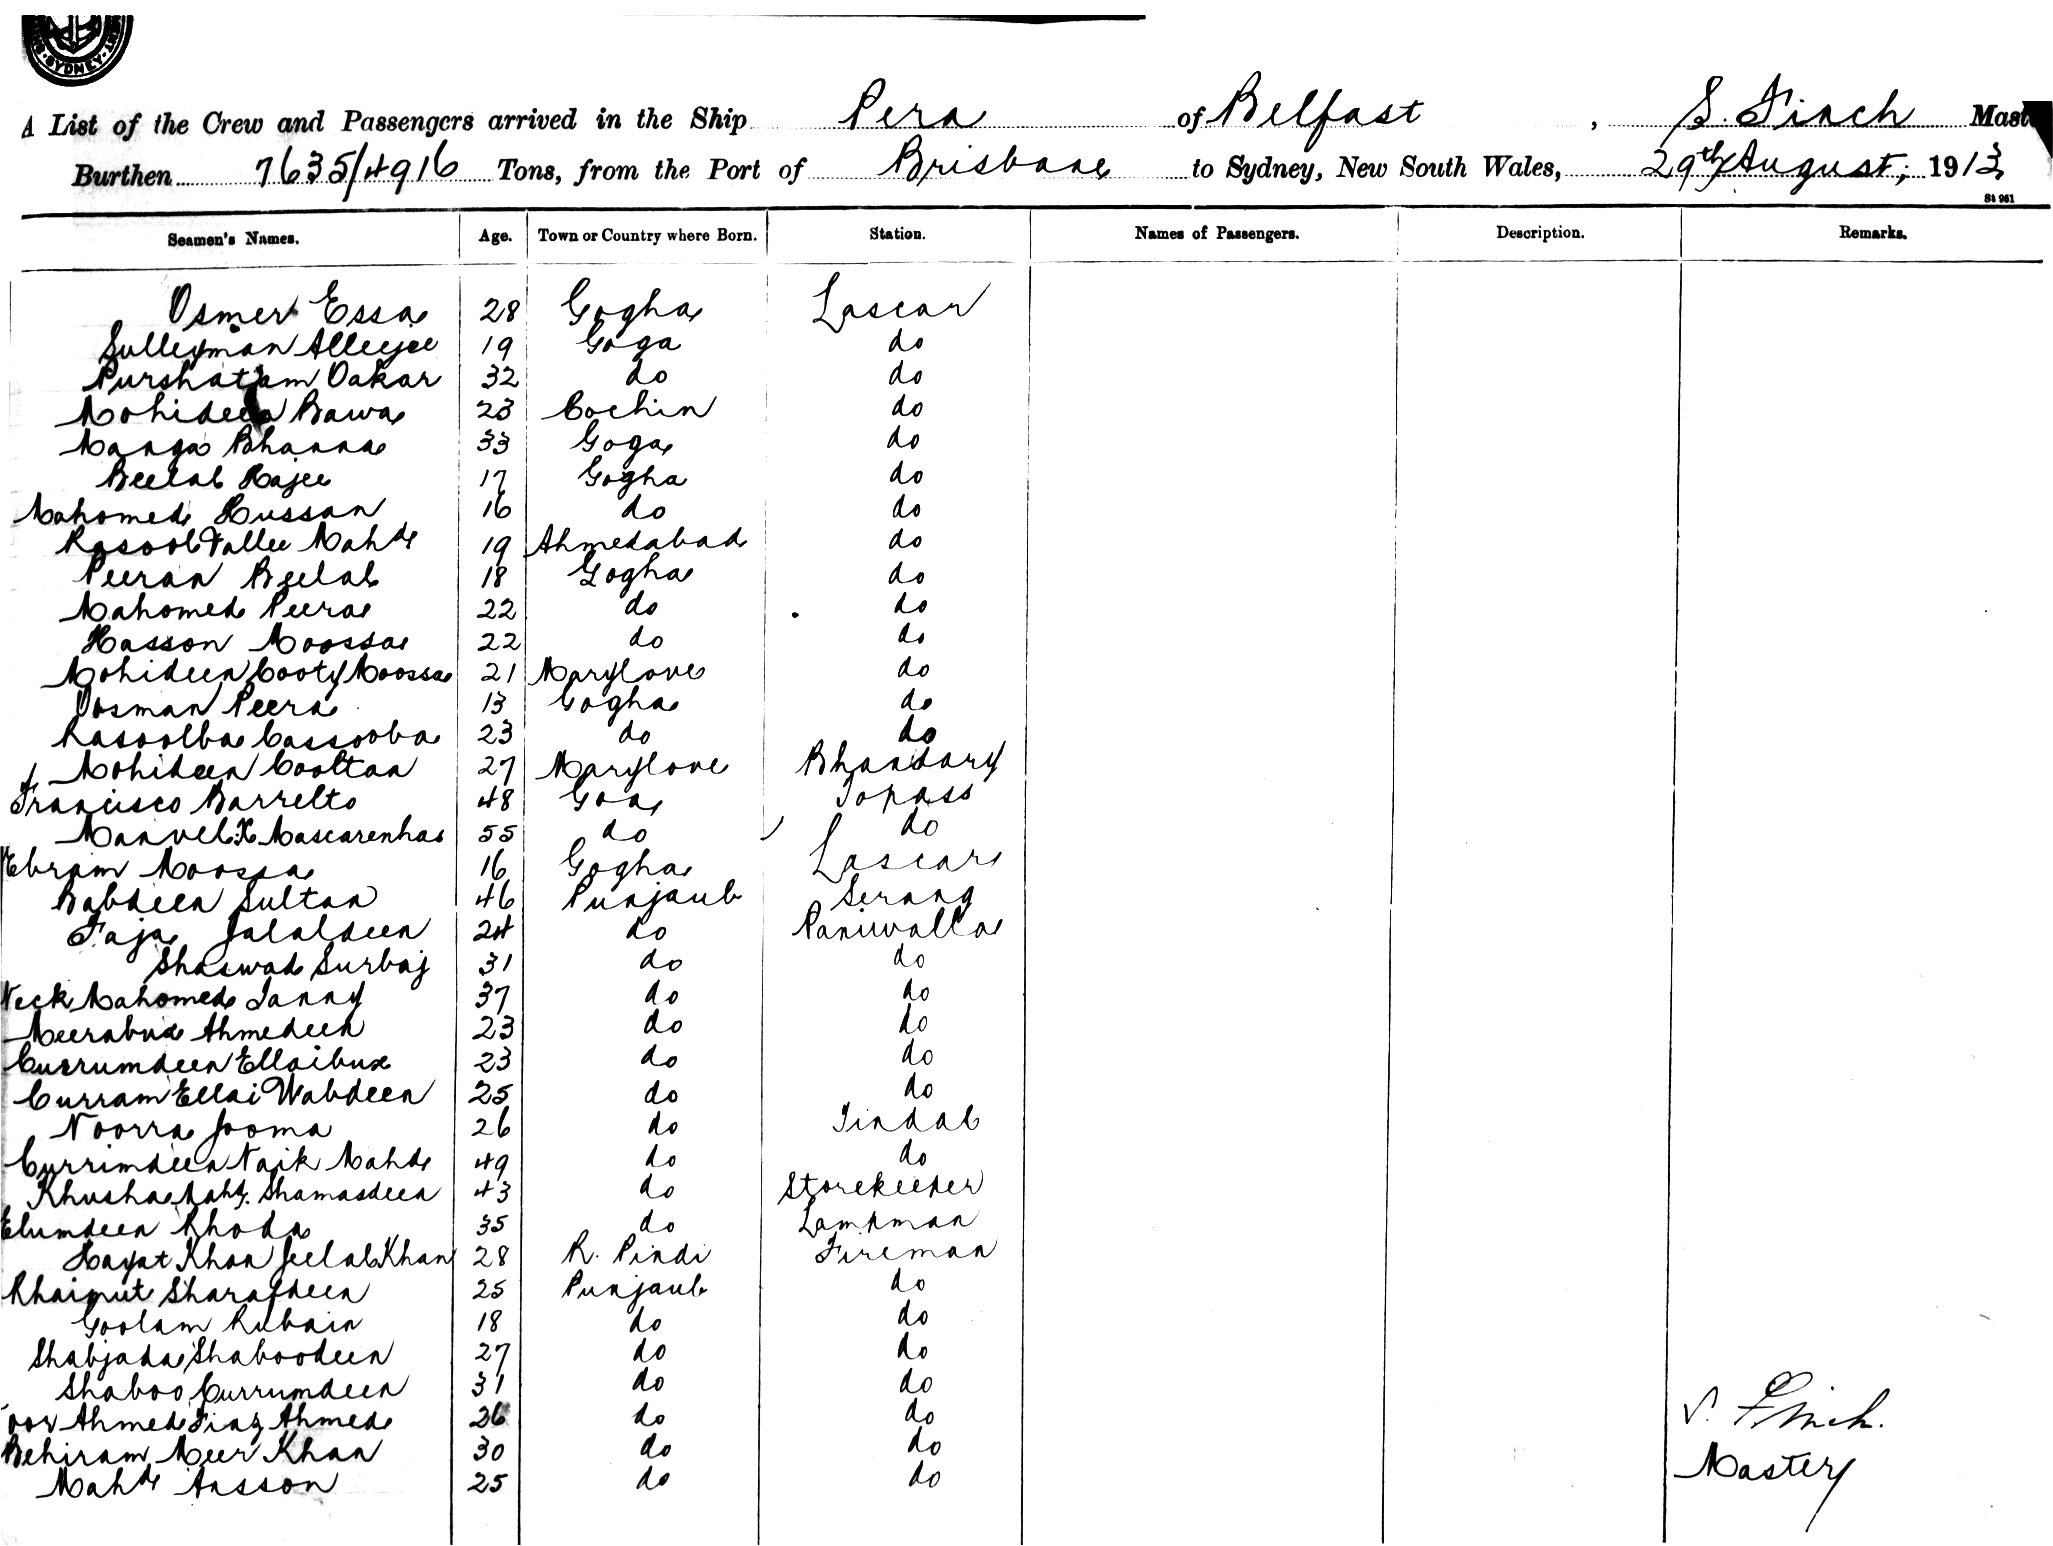 SYDNEY
A List of the Crew and Passengers arrived in the Ship Pera of Belfast, S. Finch Mast
Burthen 7635/4916 Tons, from the Port of Brisbane to Sydney, New South Wales, 29th August, 1913
St 961
Seamen's Names. Age. Town or Country where Born. Station. Names of Passengers. Description. Remarks.
Osmer Essa 28 Gogha Lascar
Sulleyman Alleejee 19 Goga do
Purshatam Dakar 32 do do
Mohideen Bawa 23 Cochin do
Manga Bhanna 33 Goga do
Beelal Hajee 17 Gogha do
Mahomed Hussan 16 do do
Rasool Vallee Mahd 19 Ahmedabad do
Peeran Beelal 18 Gogha do
Mahomed Peera 22 do do
Hasson Moossa 22 do do
Mohideen Cooty Moossa 21 Marylove do
Oosman Peera 13 Gogha do
Rasoolba Cassooba 23 do do
Mohideen Cooltan 27 Marylove Bhandary
Francisco Barretto 48 Goa Topass
Manvel X Mascarenhas 55 do do
Ebram Moossa 16 Gogha Lascar
Babdeen Sultan 46 Punjaub Serang
Faja Jalaldeen 24 do Paniwalla
Shaswad Surbaj 31 do do
Neck Mahomed Janny 37 do do
Meerabux Ahmedeen 23 do do
Currumdeen Ellaibux 23 do do
Curram Ellai Wabdeen 25 do do
Noorra Jooma 26 do Tindal
Currimdeen Naik Mahd 49 do do
Khusha Mahd. Shamasdeen 43 do Storekeeper
Elumdeen Khoda 35 do Lampman
Hayat Khan Jeelal Khan 28 R. Pindi Fireman
Khairut Sharafdeen 25 Punjaub do
Goolam Rubain 18 do do
Shabjada Shaboodeen 27 do do
Shaboo Currumdeen 31 do do
oor Ahmed Fiaz Ahmed 26 do do S. Finch.
Behiram Meer Khan 30 do do Master
Mahd Hasson 25 do do